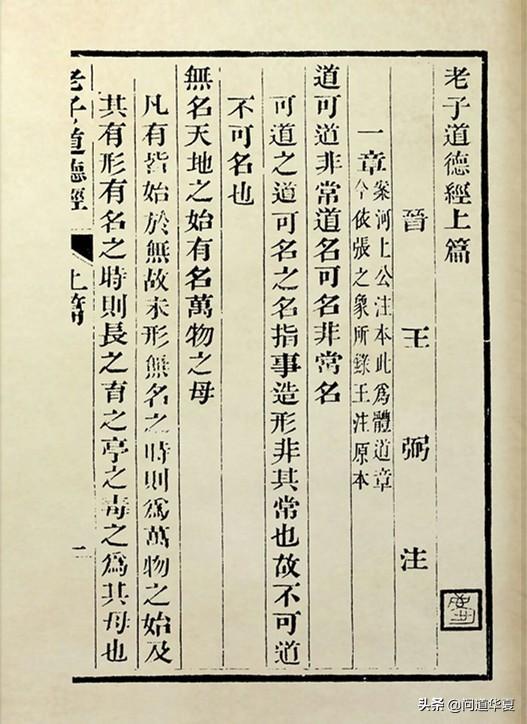 老子道德經上篇
晉王弼注
一章案河上公注本此爲體道章
今依張之象所錄王注原本
道可道非常道名可名非常名
可道之道可名之名指事造形非其常也故不可道
不可名也
無名天地之始有名萬物之母
凡有皆始於無故未形無名之時則爲萬物之始及
其有形有名之時則長之育之亭之毒之爲其母也
老子道德經 上篇 一
头条 @问道华夏